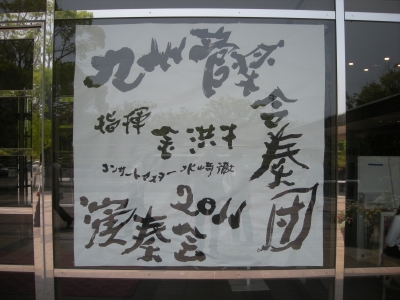 九州管楽
合奏団
指揮
金洪才
コンサートマスター 水崎徹
2011
演奏会